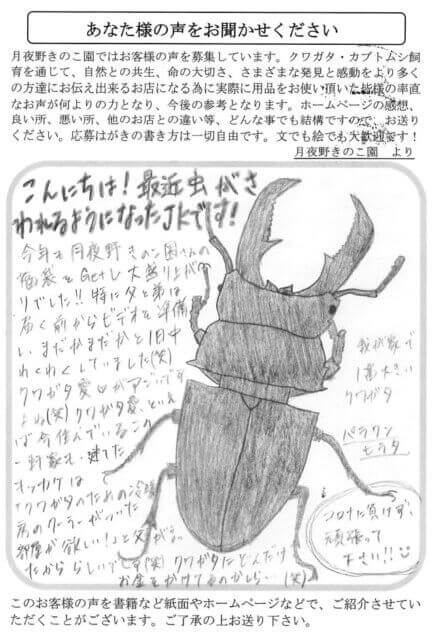 あなた様の声をお聞かせください
月夜野きのこ園ではお客様の声を募集しています。クワガタ・カブトムシ飼
育を通じて、自然との共生、命の大切さ、さまざまな発見と感動をより多く
の方達にお伝え出来るお店になる為に実際に用品をお使い頂いた皆様の率直
なお声が何よりの力となり、今後の参考となります。ホームページの感想、
良い所、悪い所、他のお店との違い等、どんな事でも結構ですので、お送り
ください。応募はがきの書き方は一切自由です。文でも絵でも大歓迎です！
月夜野きのこ園 より
こんにちは！最近虫がさ
われるようになったJKです！
今年も月夜野きのこ園さんの
福袋をGetし大盛り上が
りでした!! 特に父と弟は
届く前からビデオを準備
し、まだかまだかと1日中
わくわくしていました(笑)
クワガタ愛
よね(笑) クワガタ愛といえ
ば今住んでいるこの
一軒家も建てた
キッカケは
「クワガタのための冷暖
房のクーラーがついた
部屋が欲しい！」と父が
たから らしいです(笑) クワガタにどんだけ
お金をかけてるのかしら…(笑)
我が家で
1番大きい
クワガタ
パラワン
ヒラタ
コロナに負けず、
頑張って
下さい!!
このお客様の声を書籍など紙面やホームページなどで、ご紹介させてい
ただくことがございます。ご了承の上お送り下さい。